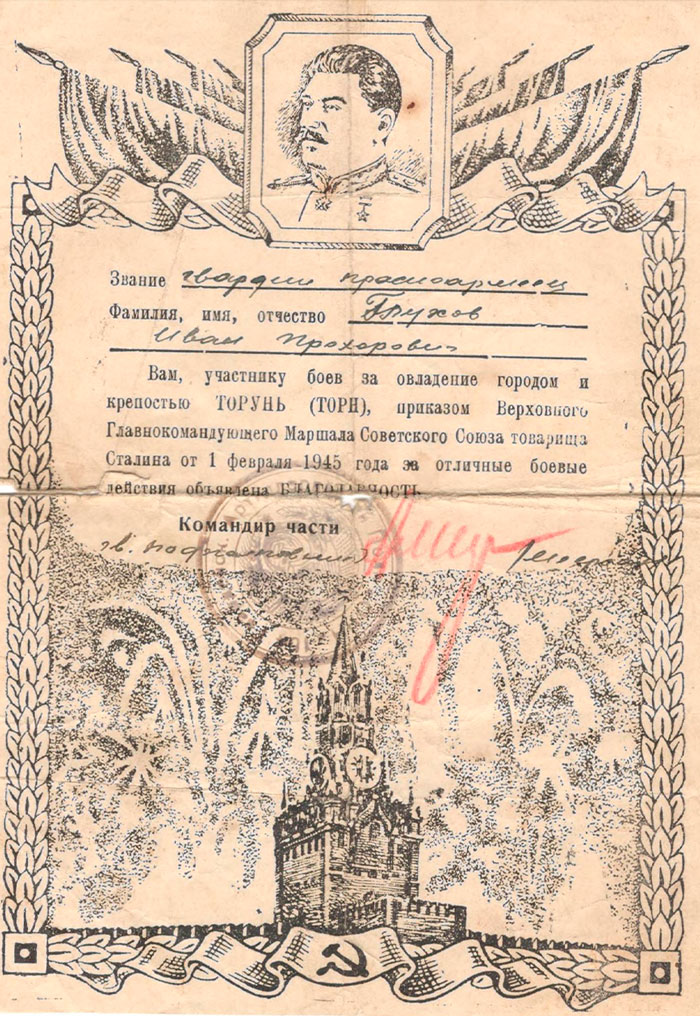 Звание гвардии красноармеец
Фамилия, имя, отчество Глухов
Иван Прохорович
Вам, участнику боев за овладение городом и
крепостью ТОРУНЬ (ТОРН), приказом Верховного
Главнокомандующего Маршала Советского Союза товарища
Сталина от 1 февраля 1945 года за отличные боевые
действия объявлена БЛАГОДАРНОСТЬ
Командир части
гв. подполковник